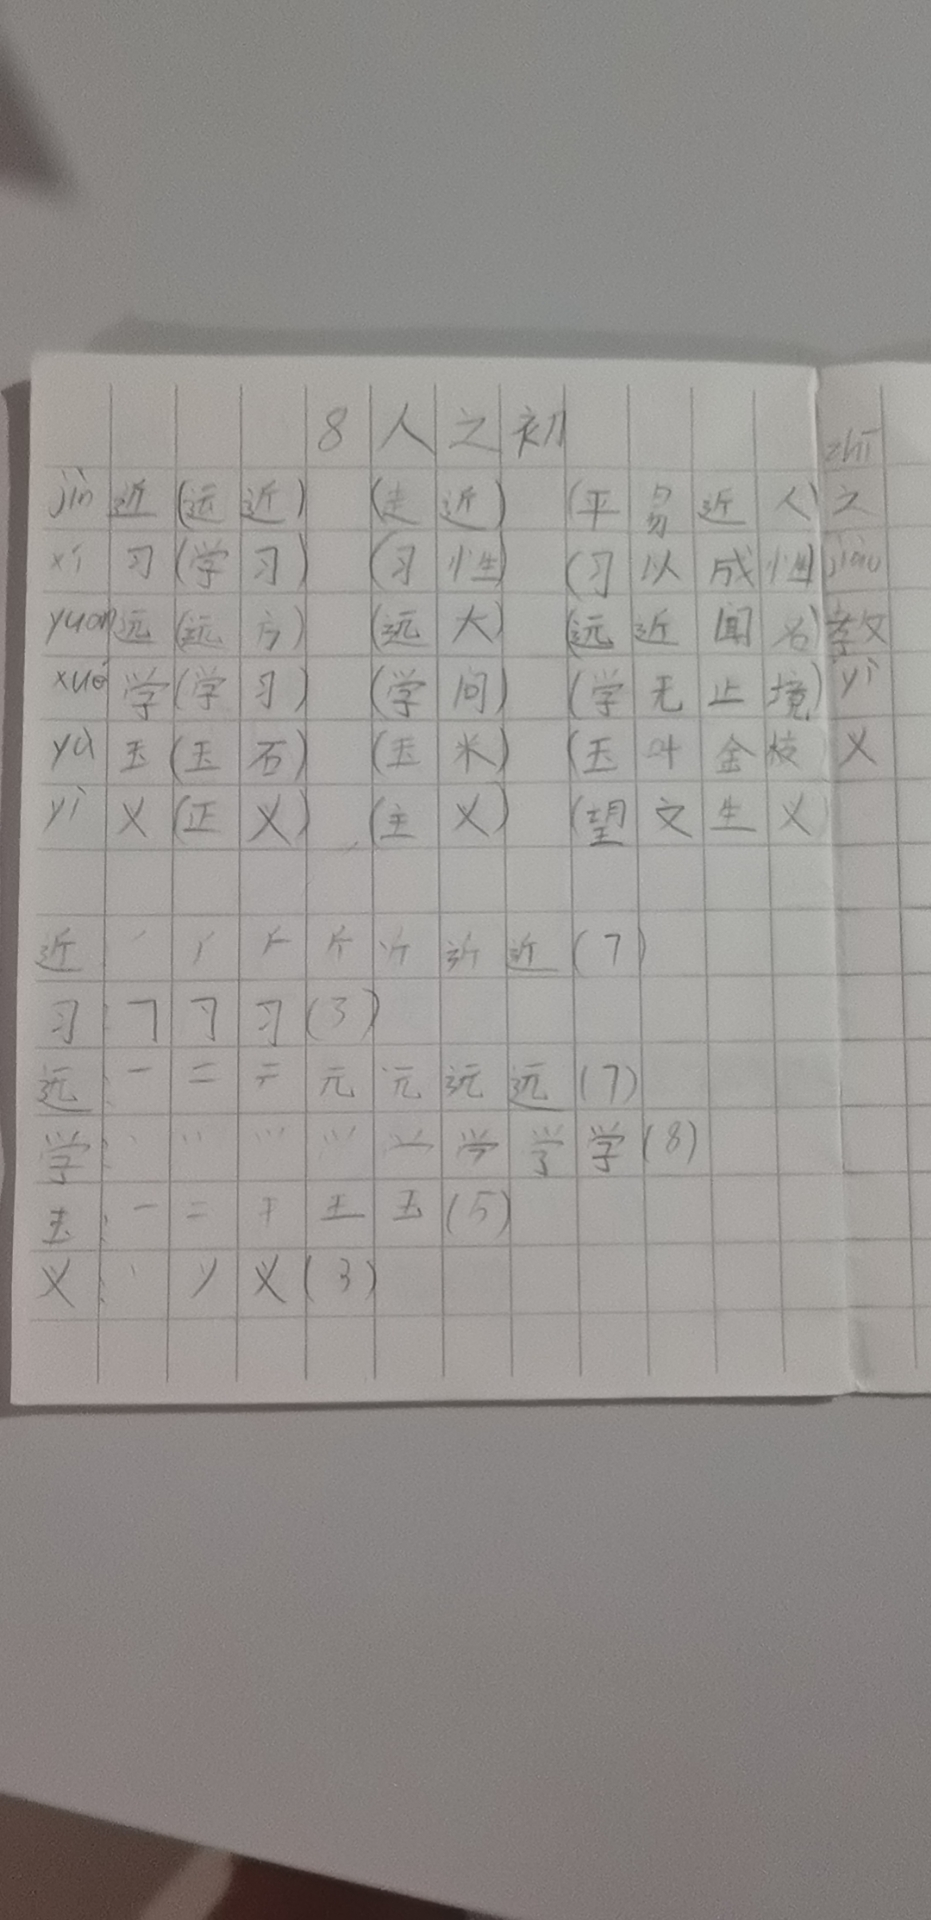 8 人之初
jìn 近 (远近) (走近) (平易近人)
xí 习 (学习) (习性) (习以成性)
yuǎn 远 (远方) (远大) (远近闻名)
xué 学 (学习) (学问) (学无止境)
yù 玉 (玉石) (玉米) (玉叶金枝
yì 义 (正义) (主义) (望文生义
近 ´ 亻 𠂆 斤 䜣 近 近 (7)
习: ㇆ 习 习 (3)
远: 一 二 テ 元 元 远 远 (7)
学: 丶 丷 ⺍ ⺍ 学 学 (8)
玉: 一 二 干 王 玉 (5)
义: 丶 丷 义 (3)
zhī
之
jiào
教
yì
义